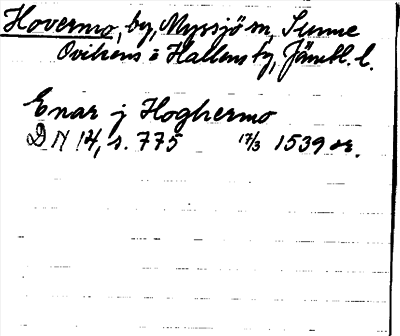 Hovermo, by, Myssjö sn, Sunne
Ovikens o Hallens tg, Jämtl. l.
Enar j Hoghermo
DN 14, s. 775 17/3 1539 or.